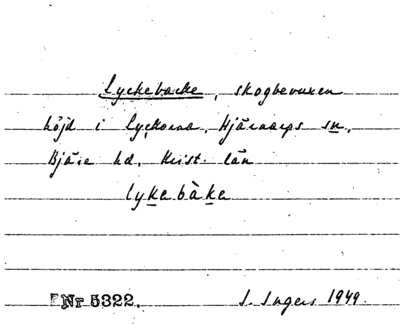 Lyckebacke, skogbevuxen
höjd i Lyckorna, Hjärnarps sn,
Bjäre hd. Krist. län
lykebàke
Nr 5322. I. Ingers 1949.